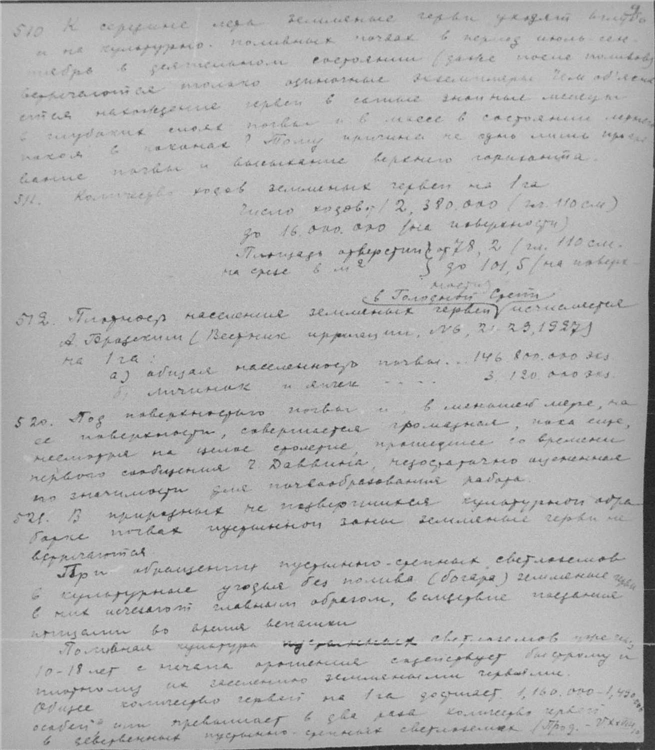 510 К середине лета земляные черви уходят вглубь
и на культурно-поливных почвах в период июль-сен-
тябрь в деятельном состоянии (даже после поливов)
встречаются только одиночные экземпляры. Чем об'ясня-
ется нахождение червей в самые знойные месяцы
в глубоких слоях почвы и в массе в состоянии летнего
покоя в коконах? Тому причина не одно лишь
вание почвы и высыхание верхнего горизонта.
511. Количество ходов земляных червей на 1 га
Число ходов 2,380,000 (гл. 110 см)
до 16.000.000 (на поверхности)
Площадь отверстий от 78,2 (гл. 110 см.
на срезе в м² до 101,5 (на поверх-
ности)
в Голодной Степи
512. Плотность населения земляных червей исчисляется
А. Бродским (Вестник ирригации, №6, 21-23, 1927)
на 1 га:
а) общая населенность почвы .. 146.800.000 экз
б) личинок и яичек .... 3.120.000 экз
520. Под поверхностью почвы и, в меньшей мере, на
ее поверхности, совершается громадная, пока еще,
несмотря на целое столетие, прошедшее со времени
первого сообщения Ч Дарвина, недостаточно оцененная
по значимости для почвообразования работа.
521. В природных не подвергшихся культурной обра-
ботке почвах пустынной зоны земляные черви не
встречаются.
При обращении пустынно-степных светлоземов
в культурные угодья без полива (богара) земляные черви
в них исчезают главным образом, вследствие поедания
птицами во время вспашки
Поливная культура пустынных светлоземов уже через
10-18 лет с начала орошения содействует быстрому и
плотному их заселению земляными червями.
Общее количество червей на 1 га достигает 1,160,000-1,430
особей или превышает в два раза количество червей
в девственных пустынно-степных светлоземах (Прод.